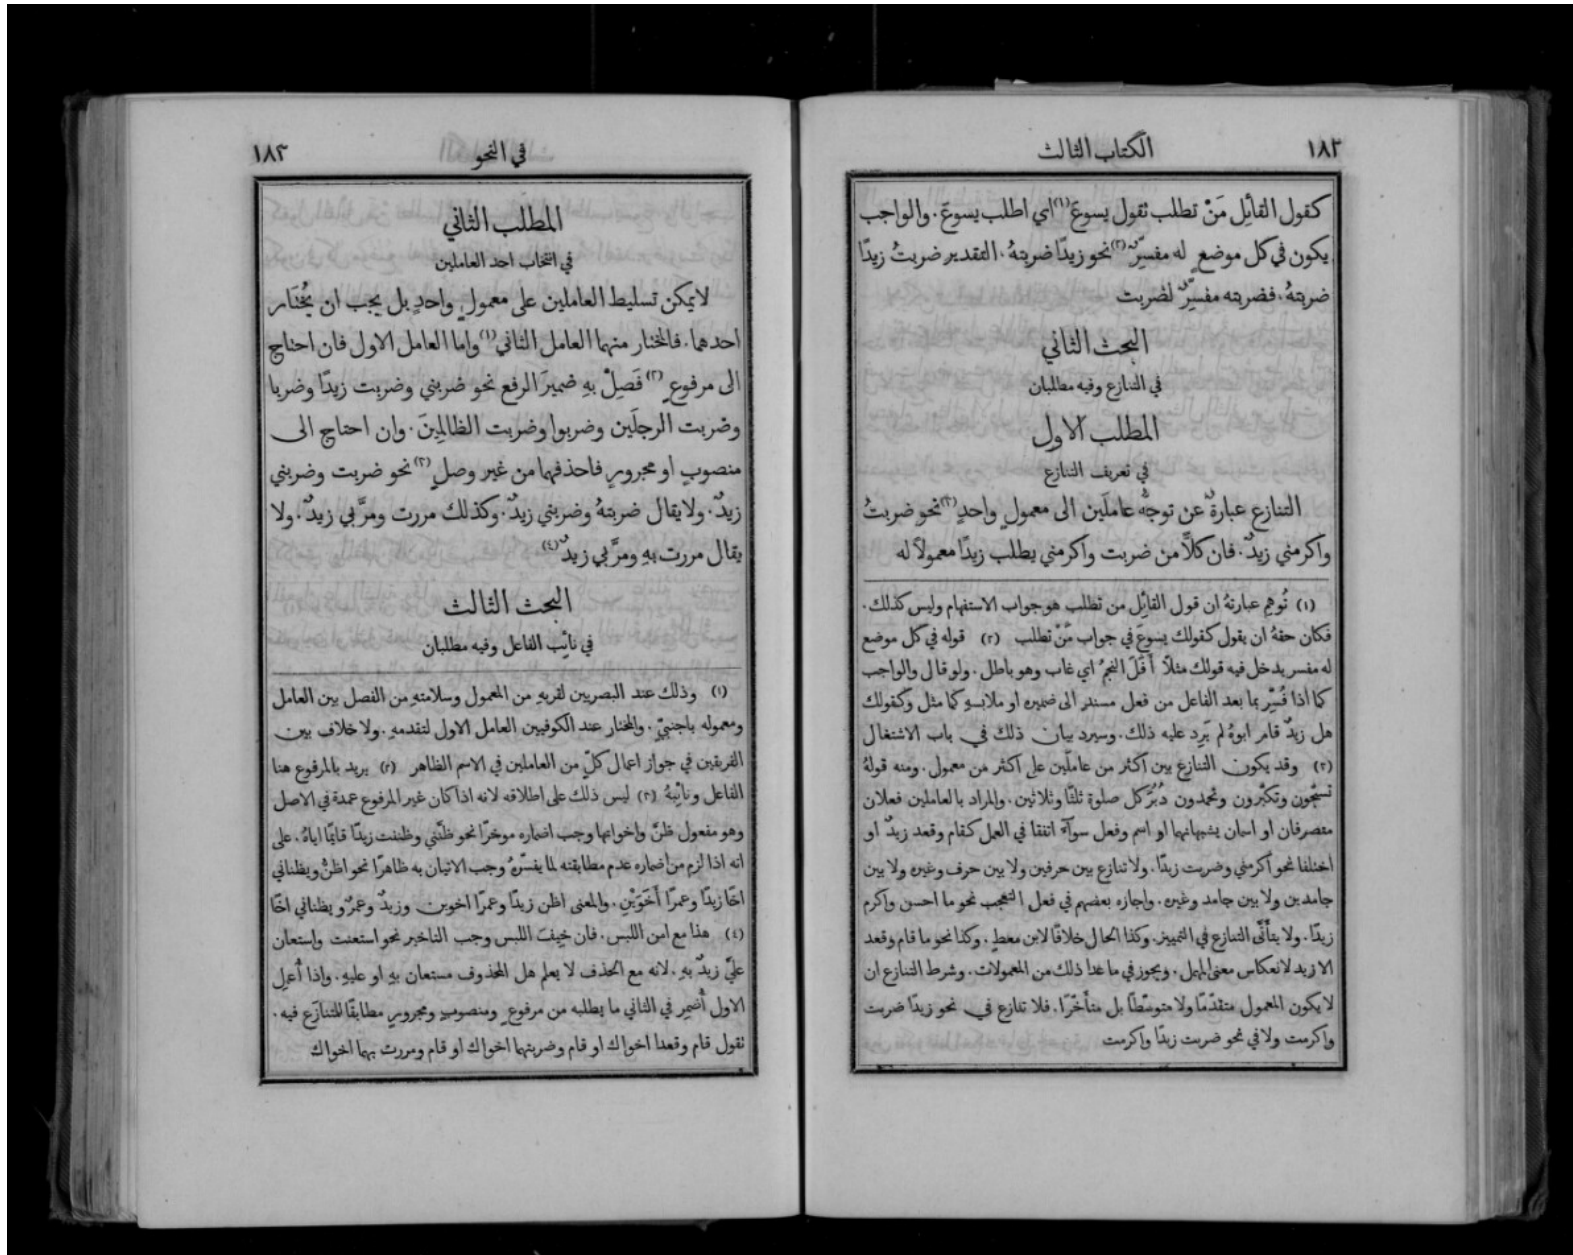 ١٨٢ الكتاب الثالث
كقول القائِل مَنْ تطلب تقول يسوعَ(١) اي اطلب يسوعَ. والواجب
يكون في كل موضعٍ له مفسِّرٌ(٢) نحو زيدًا ضربتهُ. التقدير ضربتُ زيدًا
ضربتهُ. فضربته مفسِّرٌ لضربت
البحث الثاني
في التنازع وفيه مطلبان
المطلب الاول
في تعريف التنازع
التنازع عبارةٌ عن توجُّه عاملَين الى معمولٍ واحدٍ(٣) نحو ضربتُ
واكرمني زيدٌ. فان كلاًّ من ضربت واكرمني يطلب زيدًا معمولاً له
(١) تُوهِم عبارتهُ ان قول القائِل من تطلب هو جواب الاستفهام وليس كذلك.
فكان حقهُ ان يقول كقولك يسوعَ في جواب مَنْ تطلب (٢) قوله في كل موضع
له مفسر يدخل فيه قولك مثلاً أَفَلَ النجمُ اي غاب وهو باطل. ولو قال والواجب
كما اذا فُسِّر بما بعد الفاعل من فعل مسندٍ الى ضميره او ملابسهِ كما مثل وكقولك
هل زيدٌ قام ابوهُ لم يَرِد عليه ذلك. وسيرد بيان ذلك في باب الاشتغال
(٣) وقد يكون التنازع بين اكثر من عاملَين على اكثر من معمول. ومنه قولهُ
تسبّحون وتكبّرون وتحمدون دُبُرَ كل صلوة ثلثًا وثلاثين. والمراد بالعاملين فعلان
متصرفان او اسمان يشبهانهما او اسم وفعل سوآء اتفقا في العمل كقام وقعد زيدٌ او
اختلفا نحو اكرمني وضربت زيدًا. ولا تنازع بين حرفين ولا بين حرف وغيره ولا بين
جامدين ولا بين جامد وغيره. واجازه بعضهم في فعل التعجب نحو ما احسن واكرم
زيدًا. ولا يتأَتَّى التنازع في التمييز. وكذا الحال خلافًا لابن معطٍ. وكذا نحو ما قام وقعد
الا زيد لانعكاس معنى المهمل. ويجوز في ما عدا ذلك من المعمولات. وشرط التنازع ان
لا يكون المعمول متقدّمًا ولا متوسّطًا بل متأَخّرًا. فلا تنازع في نحو زيدًا ضربت
واكرمت ولا في نحو ضربت زيدًا واكرمت
في النحو ١٨٣
المطلب الثاني
في انتخاب احد العاملين
لا يمكن تسليط العاملين على معمولٍ واحدٍ بل يجب ان يُختَار
احدهما. فالمختار منهما العامل الثاني(١) واما العامل الاول فان احتاج
الى مرفوعٍ(٢) فَصِلْ بهِ ضميرَ الرفع نحو ضربني وضربت زيدًا وضربا
وضربت الرجلَين وضربوا وضربت الظالمِينَ. وان احتاج الى
منصوبٍ او مجرورٍ فاحذفهما من غير وصلٍ(٣) نحو ضربت وضربني
زيدٌ. ولا يقال ضربتهُ وضربني زيدٌ. وكذلك مررت ومرَّ بي زيدٌ. ولا
يقال مررت بهِ ومرَّ بي زيدٌ(٤)
البحث الثالث
في نائِب الفاعل وفيه مطلبان
(١) وذلك عند البصريين لقربهِ من المعمول وسلامتهِ من الفصل بين العامل
ومعموله باجنبيٍّ. والمختار عند الكوفيين العامل الاول لتقدمهِ. ولا خلاف بين
الفريقين في جواز اعمال كلٍّ من العاملين في الاسم الظاهر (٢) يريد بالمرفوع هنا
الفاعل ونائِبهُ (٣) ليس ذلك على اطلاقه لانه اذا كان غير المرفوع عمدة في الاصل
وهو مفعول ظنَّ واخواتها وجب اضماره موخرًا نحو ظنّني وظننت زيدًا قايمًا اياهُ. على
انه اذا لزم من اضماره عدم مطابقته لما يفسّرهُ وجب الاتيان به ظاهرًا نحو اظنُّ ويظناني
اخًا زيدًا وعمرًا أَخَوَيْنِ. والمعنى اظن زيدًا وعمرًا اخوين وزيدٌ وعمرٌو يظناني اخًا
(٤) هذا مع امن اللبس. فان خِيفَ اللبس وجب التاخير نحو استعنت واستعان
عليَّ زيدٌ بهِ. لانه مع الحذف لا يعلم هل المحذوف مستعان بهِ او عليهِ. واذا أُعمِل
الاول أُضمِر في الثاني ما يطلبه من مرفوعٍ ومنصوبٍ ومجرورٍ مطابقًا للمتنازَع فيه.
تقول قام وقعدا اخواك او قام وضربتهما اخواك او قام ومررت بهما اخواك